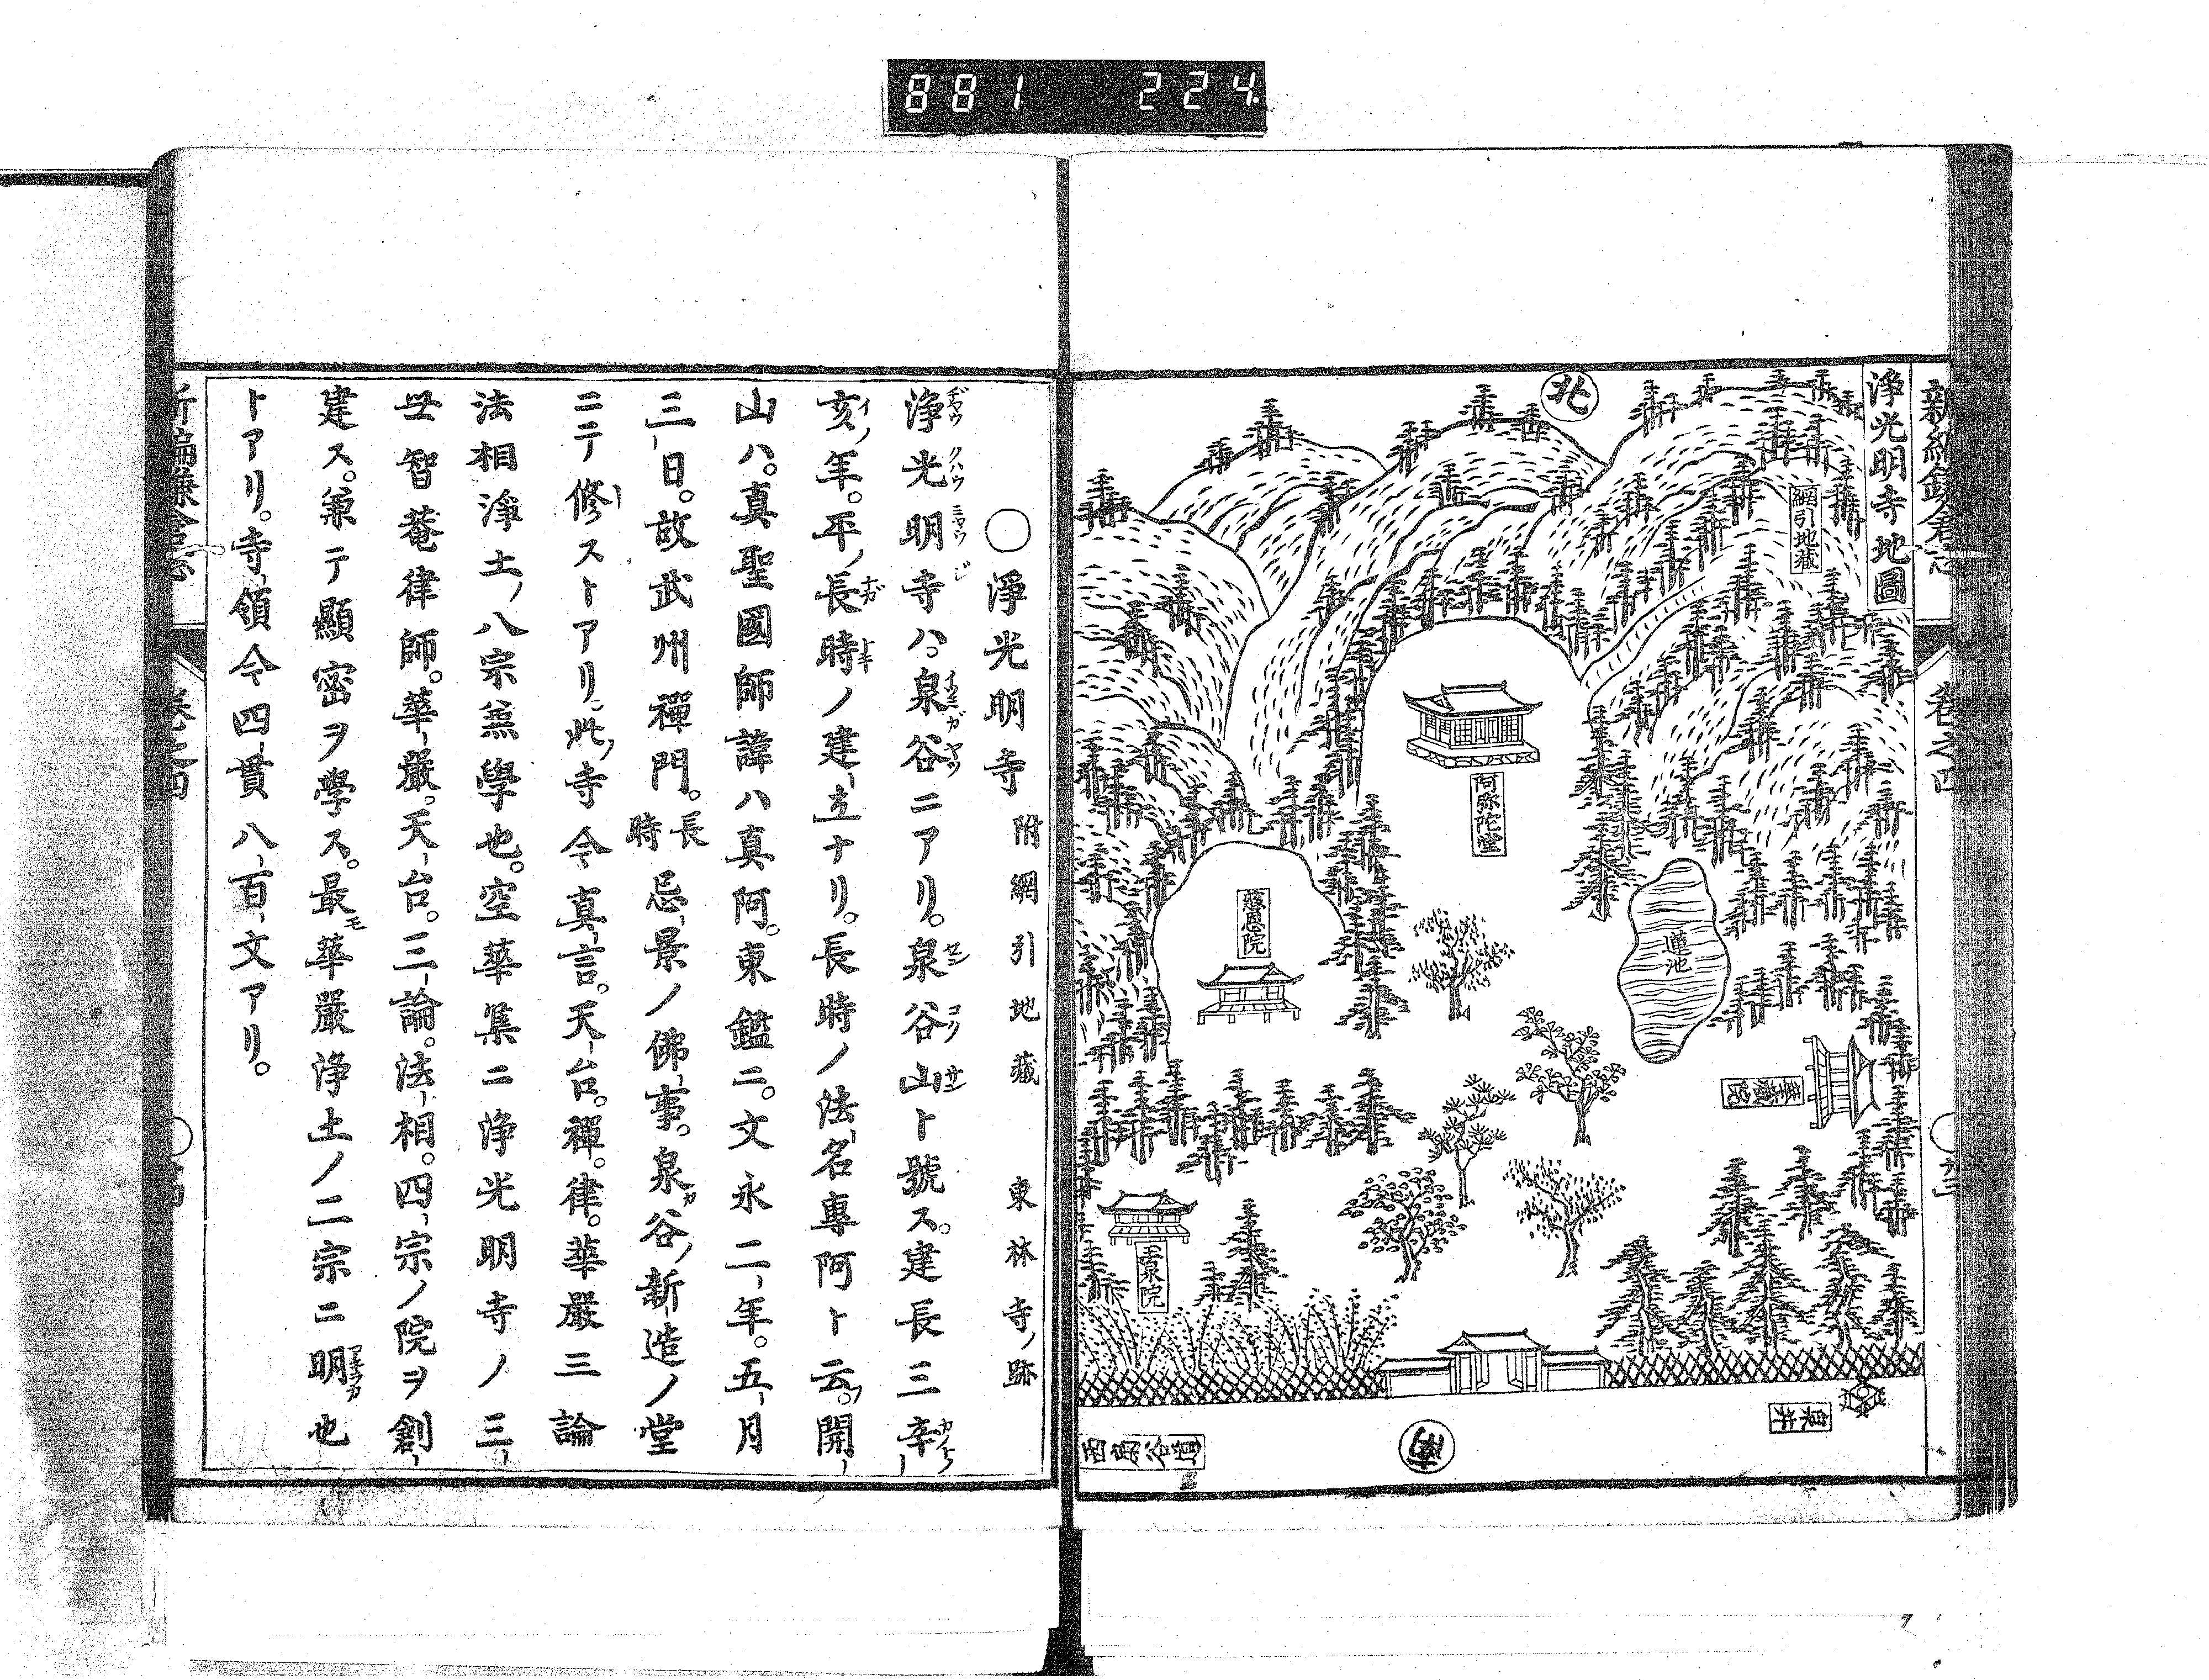 881 224
新編鎌倉志
卷之四
浄光明寺地圖
北
網引地藏
阿弥陀堂
慈恩院
蓮池
華藏院
玉泉院
泉井
南
○淨光明寺 附網引地藏 東林寺ノ跡
浄光明寺ハ。泉谷ニアリ。泉谷山ト號ス。建長三辛
亥ノ年。平ノ長時ノ建立ナリ。長時ノ法名專阿ト云フ。開
山ハ。真聖國師諱ハ真阿。東鑑ニ。文永二年。五月
三日。故武州禪門。長時忌景ノ佛事。泉カ谷ノ新造ノ堂
ニテ修ストアリ。此ノ寺今真言。天台。禪。律。華嚴三論
法相淨土ノ八宗兼學也。空華集ニ浄光明寺ノ三
世智菴律師。華嚴。天台。三論。法相。四宗ノ院ヲ創
建ス。兼テ顯密ヲ學ス。最モ華嚴浄土ノ二宗ニ明也
トアリ。寺領今四貫八百文アリ。
新編鎌倉志
卷之四